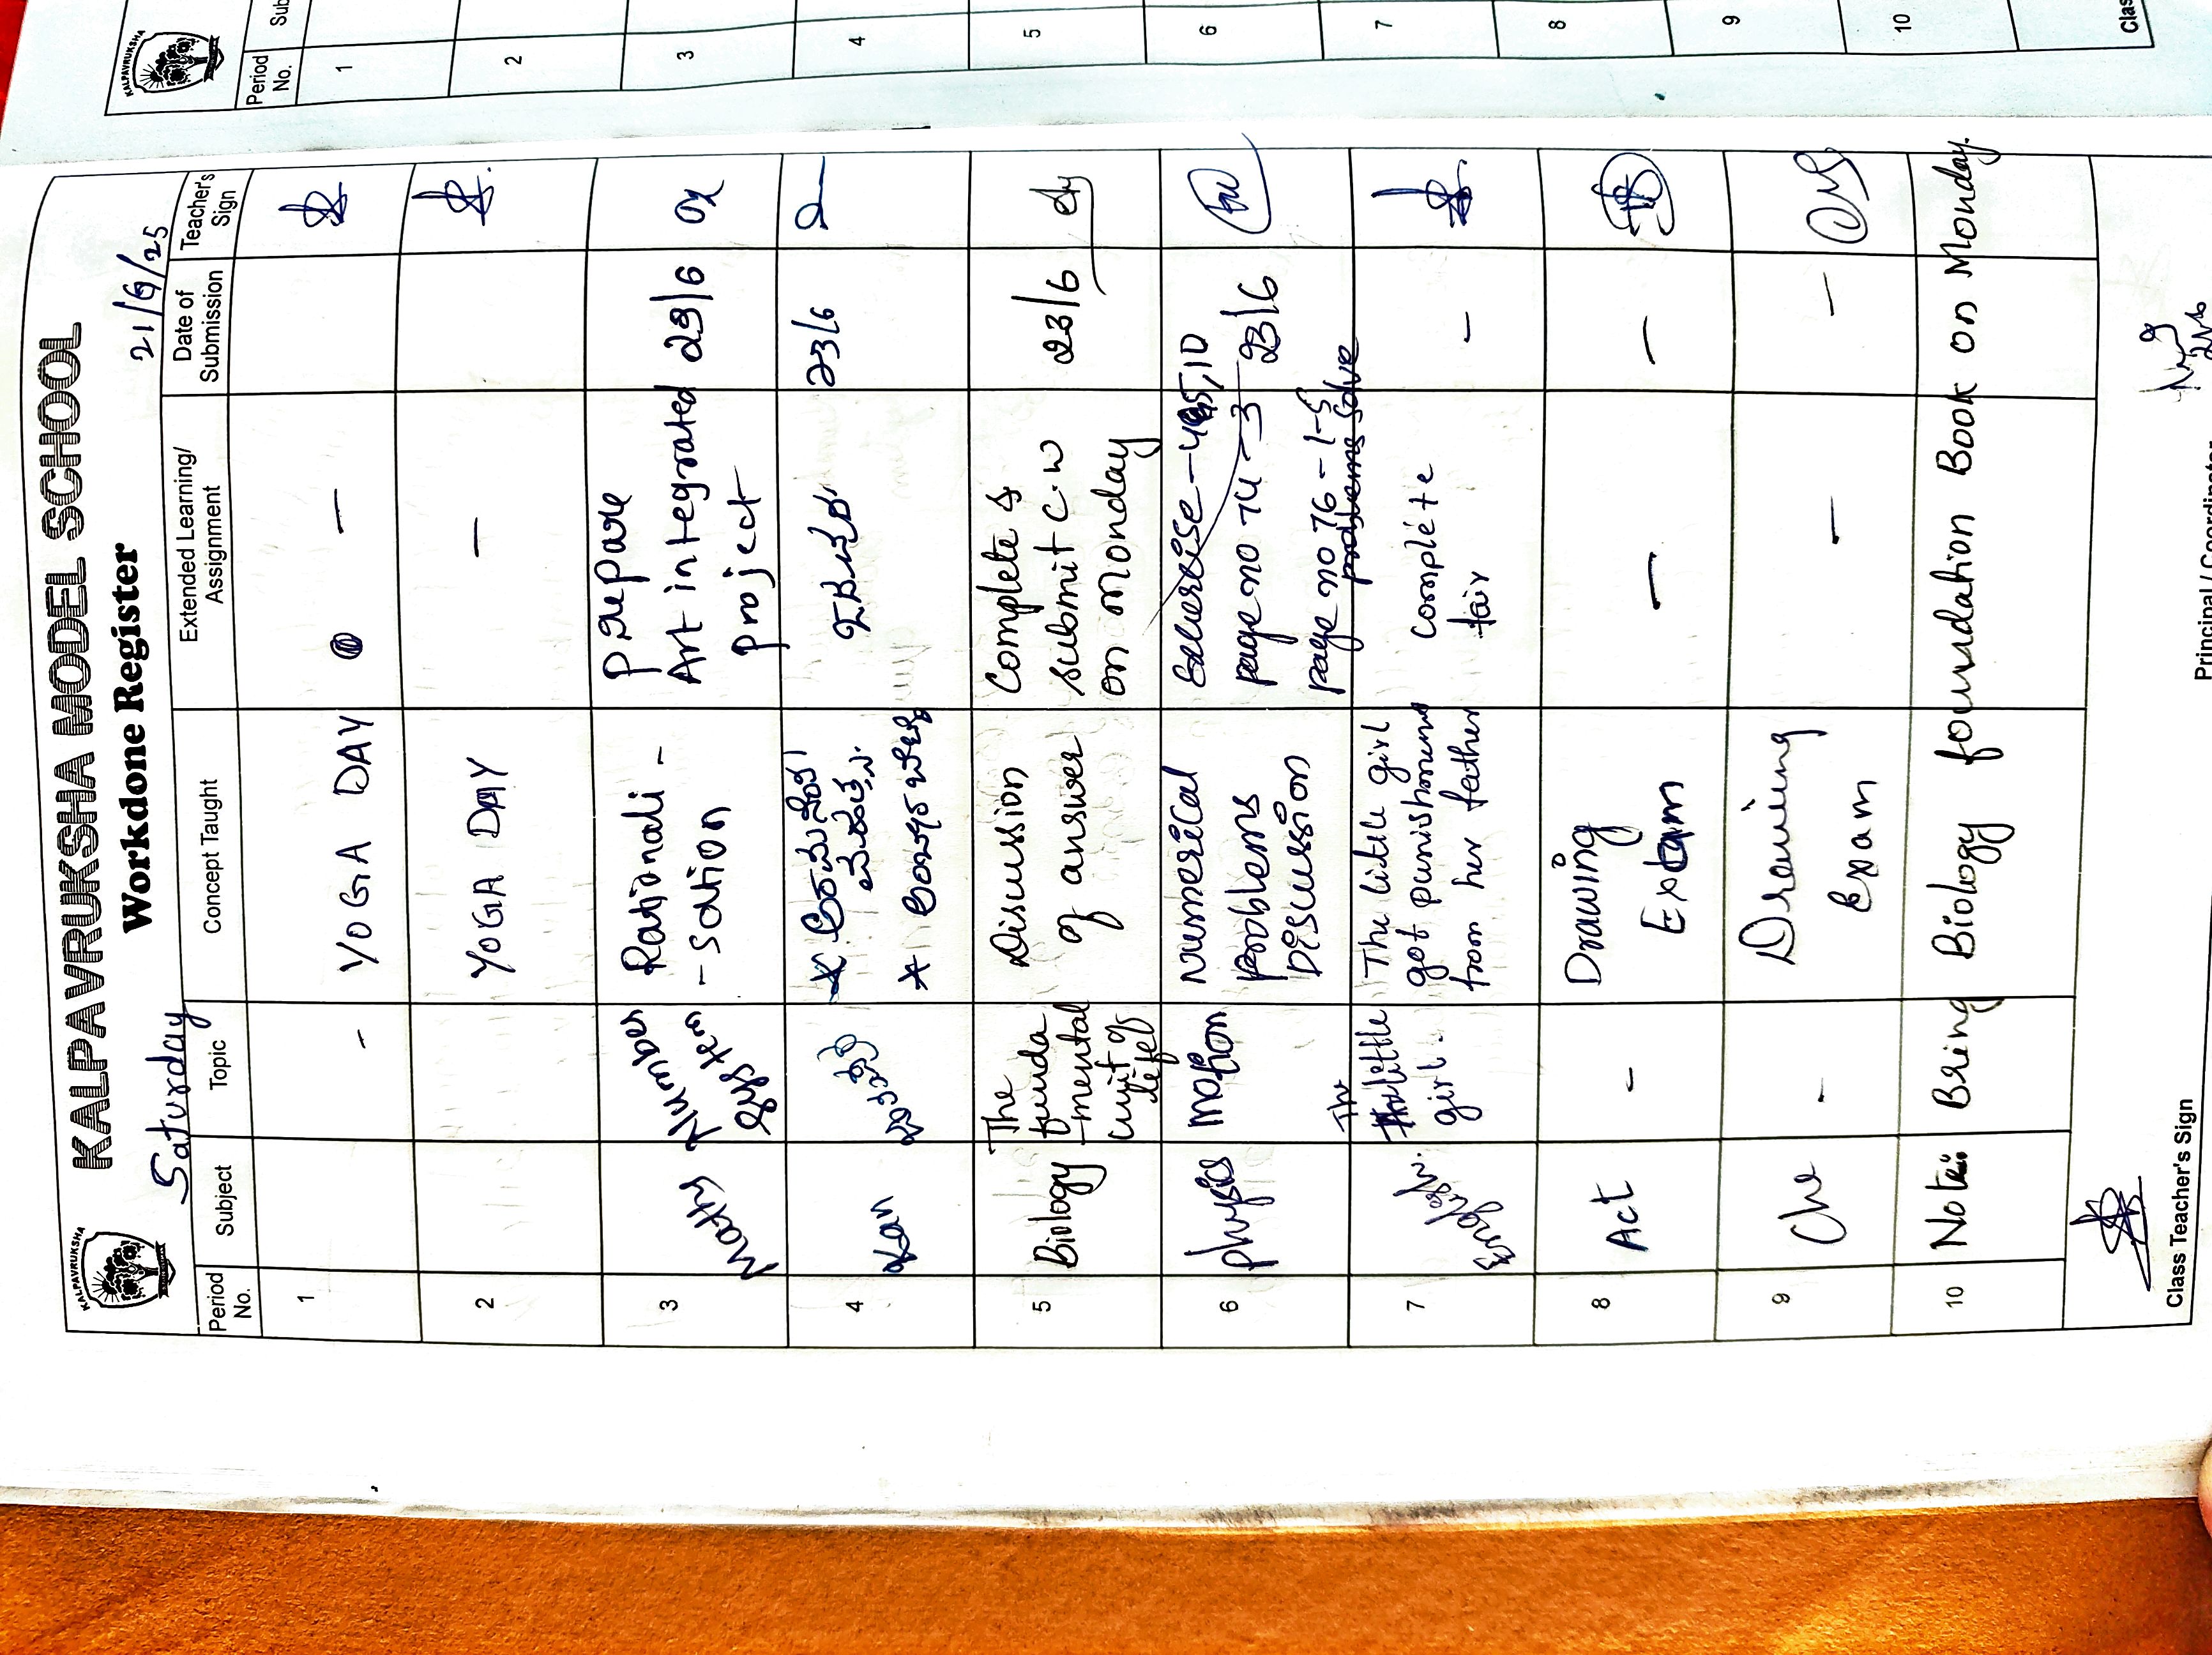 KALPAVRUKSHA
Period No.
Sub
1
2
3
4
5
6
7
8
9
10
Clas
KALPAVRUKSHA
KALPAVRUKSHA MODEL SCHOOL
Workdone Register
Saturday
21/6/25
Period No.
Subject
Topic
Concept Taught
Extended Learning/ Assignment
Date of Submission
Teacher's Sign
1
-
YOGA DAY
-
2
YOGA DAY
-
3
Maths
Number
System
Rationali -
- sation
Prepare
Art integrated
Project
23/6
4
Kan
23/6
5
Biology
The
funda
-mental
unit of
life
Discussion
of answer
Complete &
submit C.W
on monday
23/6
6
physics
motion
Numerical
problems
Discussion
Exercise -
page no 74 - 3
page no 76 - 1-5
problems solve
23/6
7
English.
The
little
girl.
The little girl
got punishment
from her father
complete
fair
-
8
Act
-
Drawing
Exam
-
-
9
Che
-
Drawing
Exam
-
-
10
Note: Bring Biology foundation Book on Monday.
Class Teacher's Sign
Principal / Coordinator